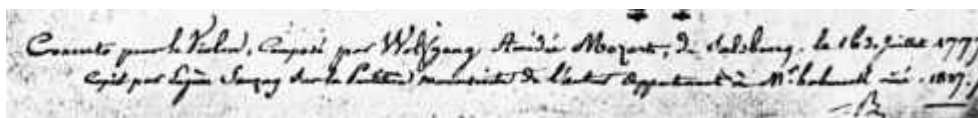 Concerto pour le Violon, Composé par Wolfgang Amédée Mozart, de Salsbourg. le 16 d. Juillet 1777
Copié par Eugène Sauzay sur la Partition manuscrite de l'auteur Appartenant à Mr habeneck ainé. 1837.